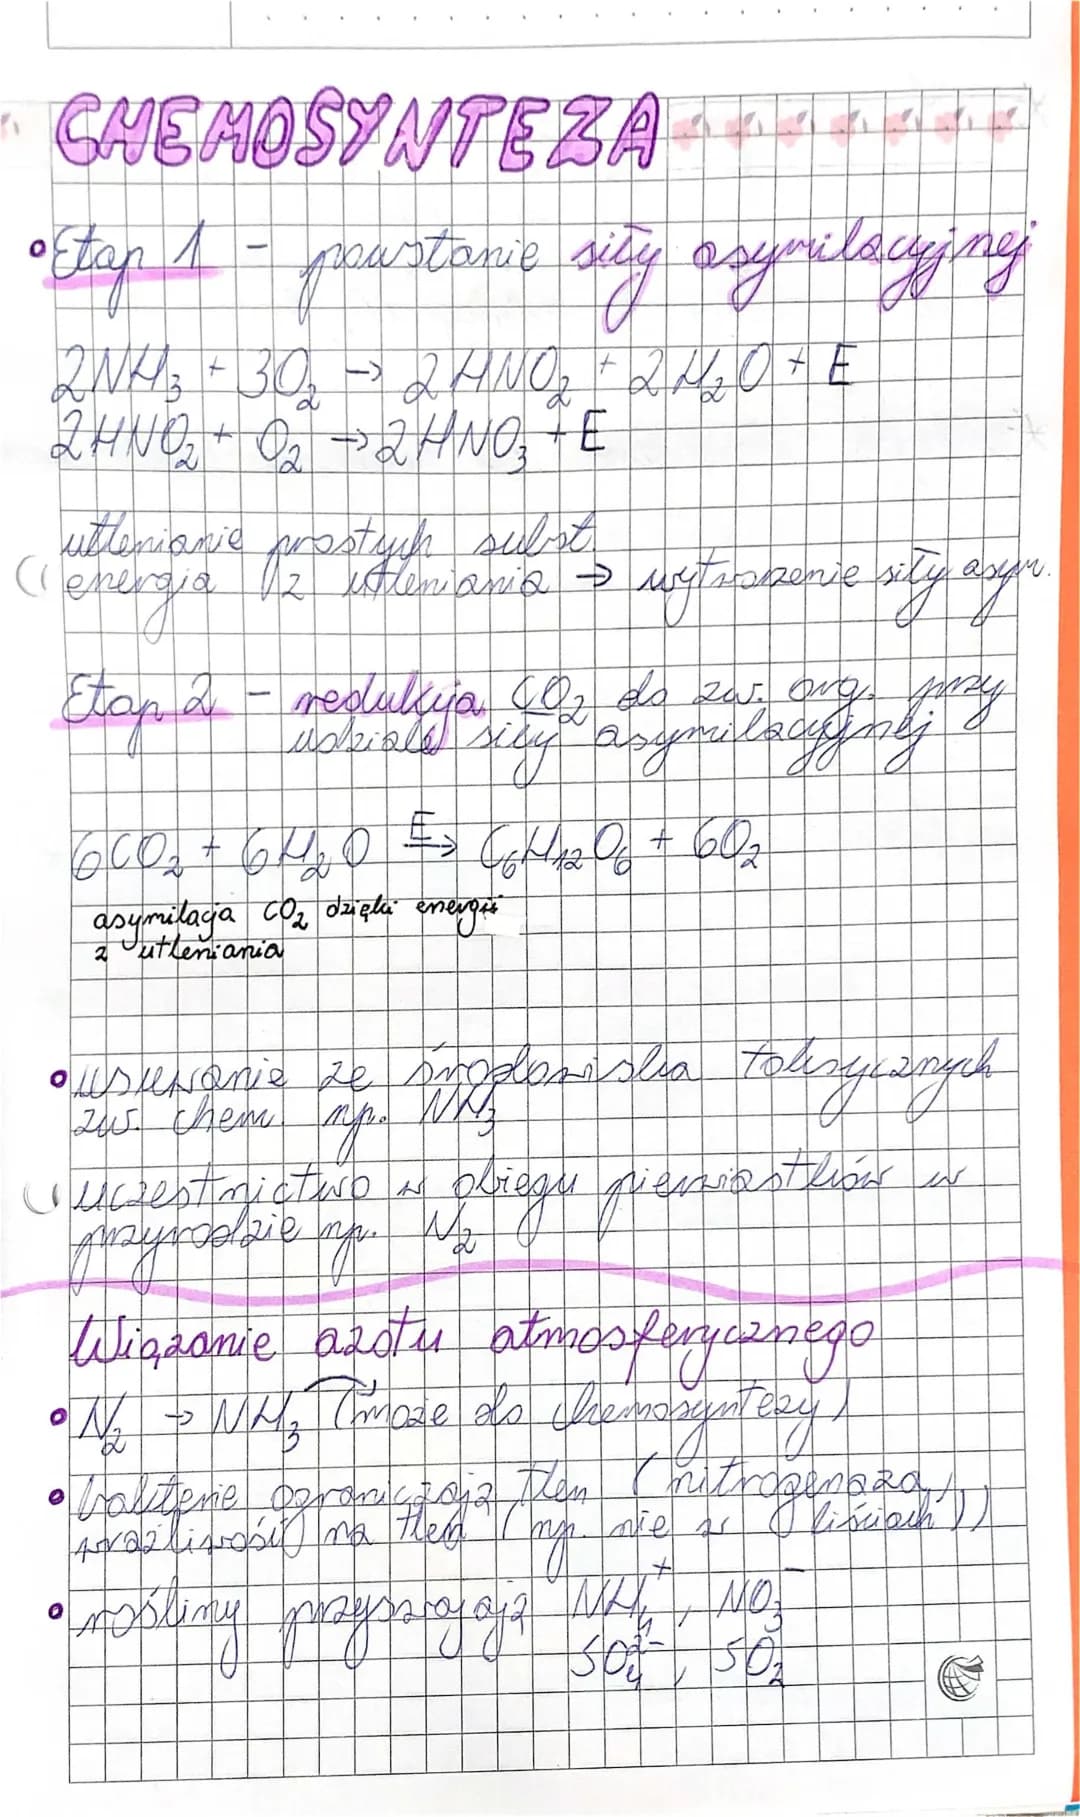 CHEMOSYNTEZA
• Etap 1 - powstanie siły asymilacyjnej
2NH₃ + 3O₂ → 2HNO₂ + 2H₂O + E
2HNO₂ + O₂ → 2HNO₃ + E
utlenianie prostych subst.
energia z utleniania → wytworzenie siły asym.
Etap 2 - redukcja CO₂ do zw. org. przy
udziale siły asymilacyjnej
6CO₂ + 6H₂O E→ C₆H₁₂O₆ + 6O₂
asymilacja CO₂ dzięki energii
z utleniania
• usuwanie ze środowiska toksycznych
zw. chem. np. NH₃
uczestnictwo w obiegu pierwiastków w
przyrodzie np. N₂
Wiązanie azotu atmosferycznego
• N₂ → NH₃ (może do chemosyntezy)
• bakterie ograniczają tlen (nitrogenaza,
wrażliwość na tlen (np. nie w liściach))
• rośliny przyswajają NH₄⁺, NO₃⁻
SO₄²⁻, SO₂